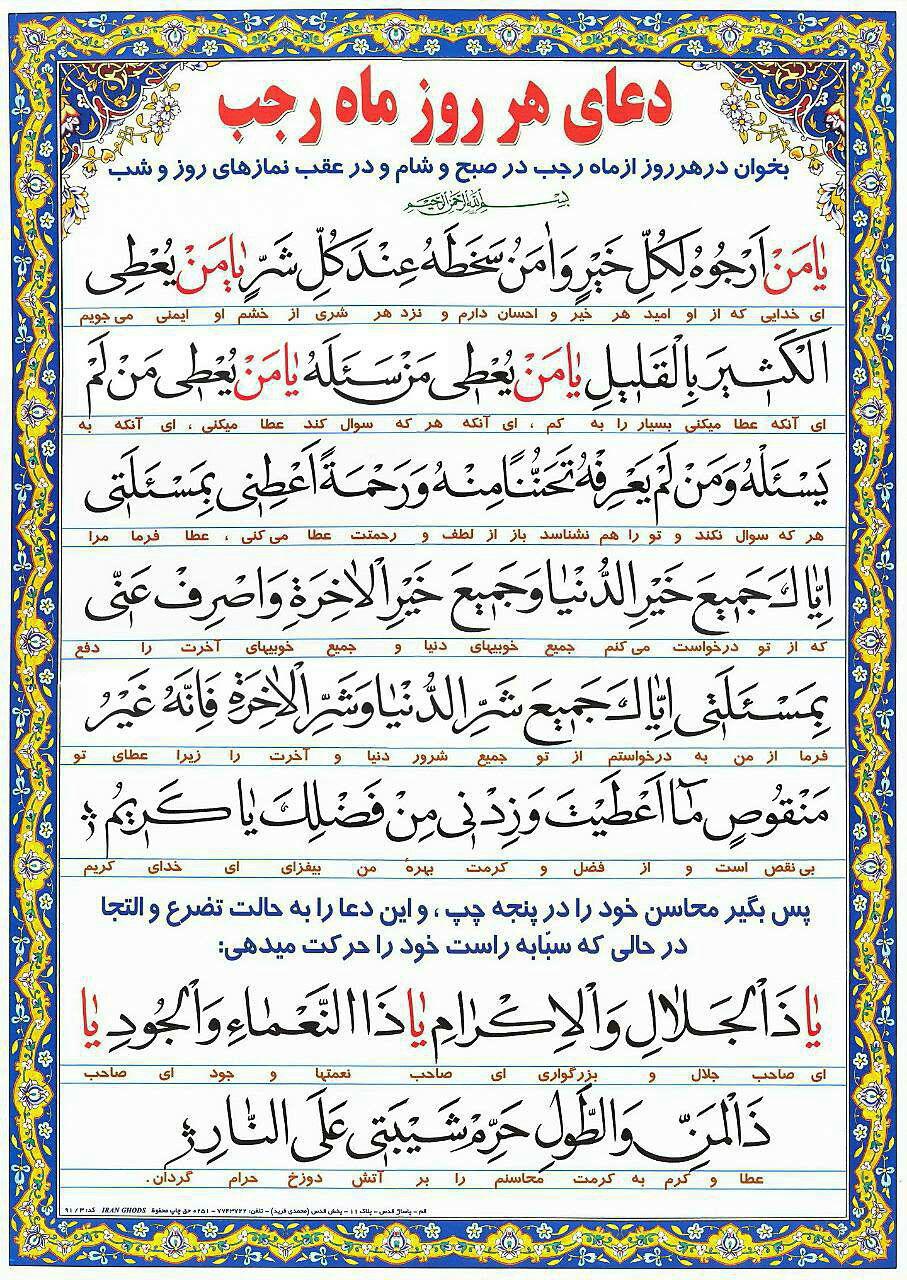 دعای هر روز ماه رجب
بخوان در هر روز از ماه رجب در صبح و شام و در عقب نمازهای روز و شب
بسم الله الرحمن الرحیم
یٰا مَنْ اَرْجُوهُ لِکُلِّ خَیْرٍ وَ اٰمَنُ سَخَطَهُ عِنْدَ کُلِّ شَرٍّ یٰا مَنْ یُعْطِی
ای خدایی که از او امید هر خیر و احسان دارم و نزد هر شری از خشم او ایمنی می جویم
الْکَثٖیرَ بِالْقَلٖیلِ یٰا مَنْ یُعْطٖی مَنْ سَئَلَهُ یٰا مَنْ یُعْطٖی مَنْ لَمْ
ای آنکه عطا میکنی بسیار را به کم ، ای آنکه هر که سوال کند عطا میکنی ، ای آنکه به
یَسْئَلْهُ وَ مَنْ لَمْ یَعْرِفْهُ تَحَنُّنًا مِنْهُ وَ رَحْمَةً اَعْطِنٖی بِمَسْئَلَتٖی
هر که سوال نکند و تو را هم نشناسد باز از لطف و رحمتت عطا می کنی ، عطا فرما مرا
اِیّٰاکَ جَمٖیعَ خَیْرِ الدُّنْیٰا وَ جَمٖیعَ خَیْرِ الْاٰخِرَةِ وَ اصْرِفْ عَنّٖی
که از تو درخواست می کنم جمیع خوبیهای دنیا و جمیع خوبیهای آخرت را دفع
بِمَسْئَلَتٖی اِیّٰاکَ جَمٖیعَ شَرِّ الدُّنْیٰا وَ شَرِّ الْاٰخِرَةِ فَاِنَّهُ غَیْرُ
فرما از من به درخواستم از تو جمیع شرور دنیا و آخرت را زیرا عطای تو
مَنْقُوصٍ مٰا اَعْطَیْتَ وَ زِدْنٖی مِنْ فَضْلِکَ یٰا کَرٖیمُ
بی نقص است و از فضل و کرمت بهرهٔ من بیفزای ای خدای کریم
پس بگیر محاسن خود را در پنجه چپ ، و این دعا را به حالت تضرع و التجا
در حالی که سبّابه راست خود را حرکت میدهی:
یٰا ذَالْجَلٰالِ وَالْاِکْرٰامِ یٰا ذَاالنَّعْمٰاءِ وَالْجُودِ یٰا
ای صاحب جلال و بزرگواری ای صاحب نعمتها و جود ای صاحب
ذَالْمَنِّ وَالطَّوْلِ حَرِّمْ شَیْبَتٖی عَلَی النّٰارِ
عطا و کرم به کرمت محاسنم را بر آتش دوزخ حرام گردان.
قم - پاساژ قدس - پلاک ۱۱ - پخش قدس (محمدی فرید) - تلفن: ۷۷۴۳۷۲۲ - ۰۲۵۱ حق چاپ محفوظ IRAN GHODS کد: ۳ / ۹۱